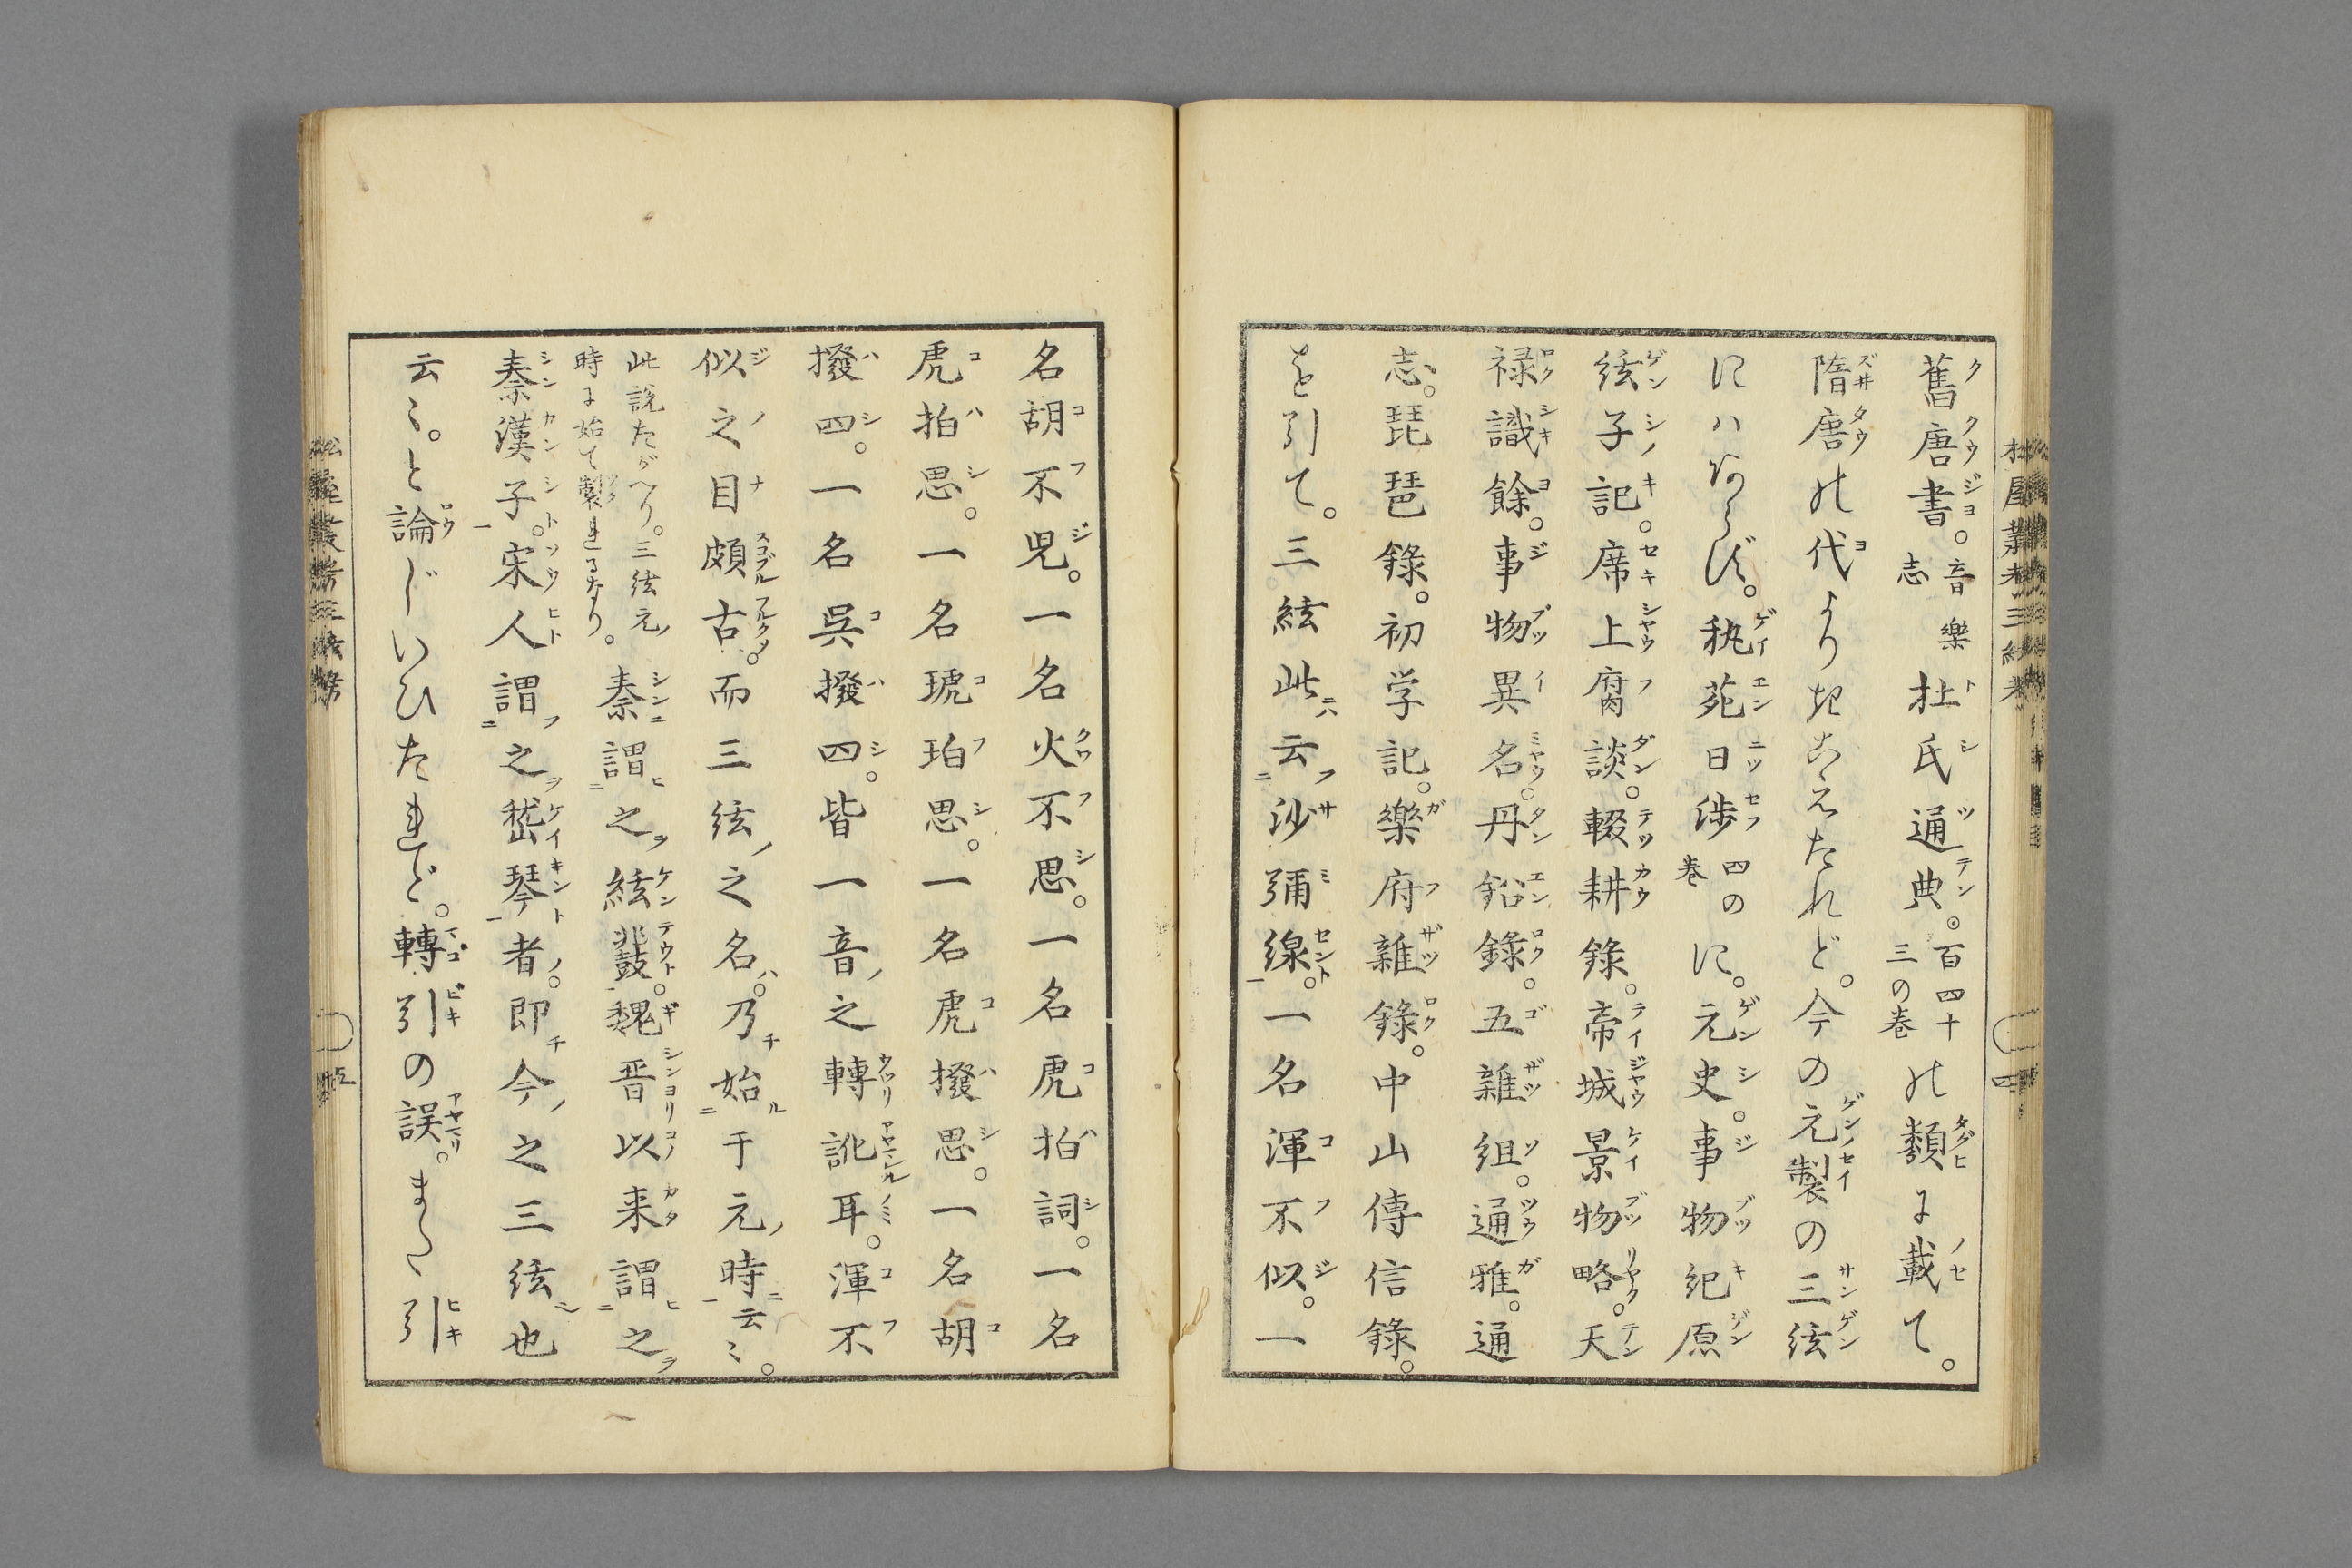 舊唐書。音樂志杜氏通典。百四十三の巻の類に載て。
隋唐の代よりきこえたれど。今の元製の三絃
にハあらず。秇苑日渉四の巻に。元史。事物紀原
絃子記。席上腐談。輟耕錄。帝城景物略。天
禄識餘。事物異名。丹鉛錄。五雜組。通雅。通
志。琵琶錄。初学記。樂府雜錄。中山傳信錄。
を引て。三絃此云沙彌線。一名渾不似。一
名胡不児。一名火不思。一名虎拍詞。一名
虎拍思。一名琥珀思。一名虎撥思。一名胡
撥四。一名呉撥四。皆一音之轉訛耳。渾不
似之目頗古。而三絃之名。乃始于元時云〻。
此説たがへり。三絃元ノ時に始て製れるなり。秦謂之絃鼗。魏晋以来謂之
秦漢子。宋人謂之嵆琴者。即今之三絃也
云〻。と論じいひたれど。轉引の誤。また引